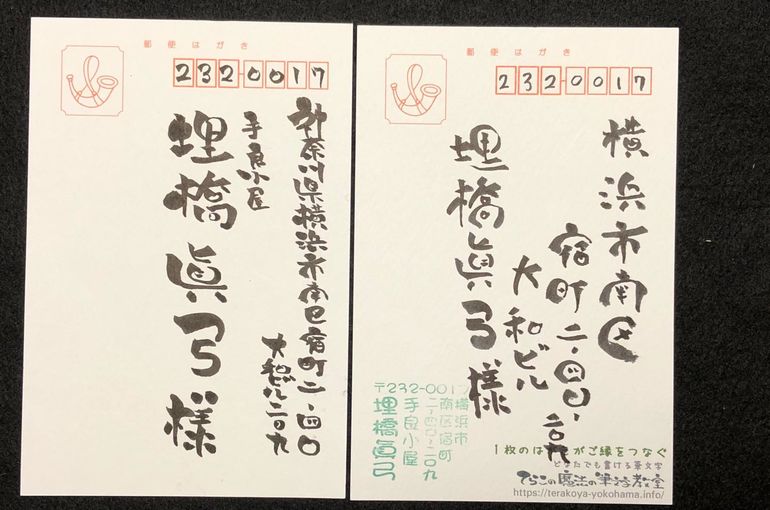 郵便はがき
232-0017
神奈川県横浜市南区宿町二、四〇
大和ビル二〇九
手良小屋
埋橋眞弓様
郵便はがき
232-0017
横浜市南区
宿町二、四〇、二〇九
大和ビル
埋橋眞弓様
〒232-0017
横浜市
南区宿町
二、四〇-二〇九
手良小屋
埋橋眞弓
1枚のは
がご縁をつなぐ
どなたでも書ける筆文字
てらこの魔法の筆文字教室
https://terakoya-yokohama.info/